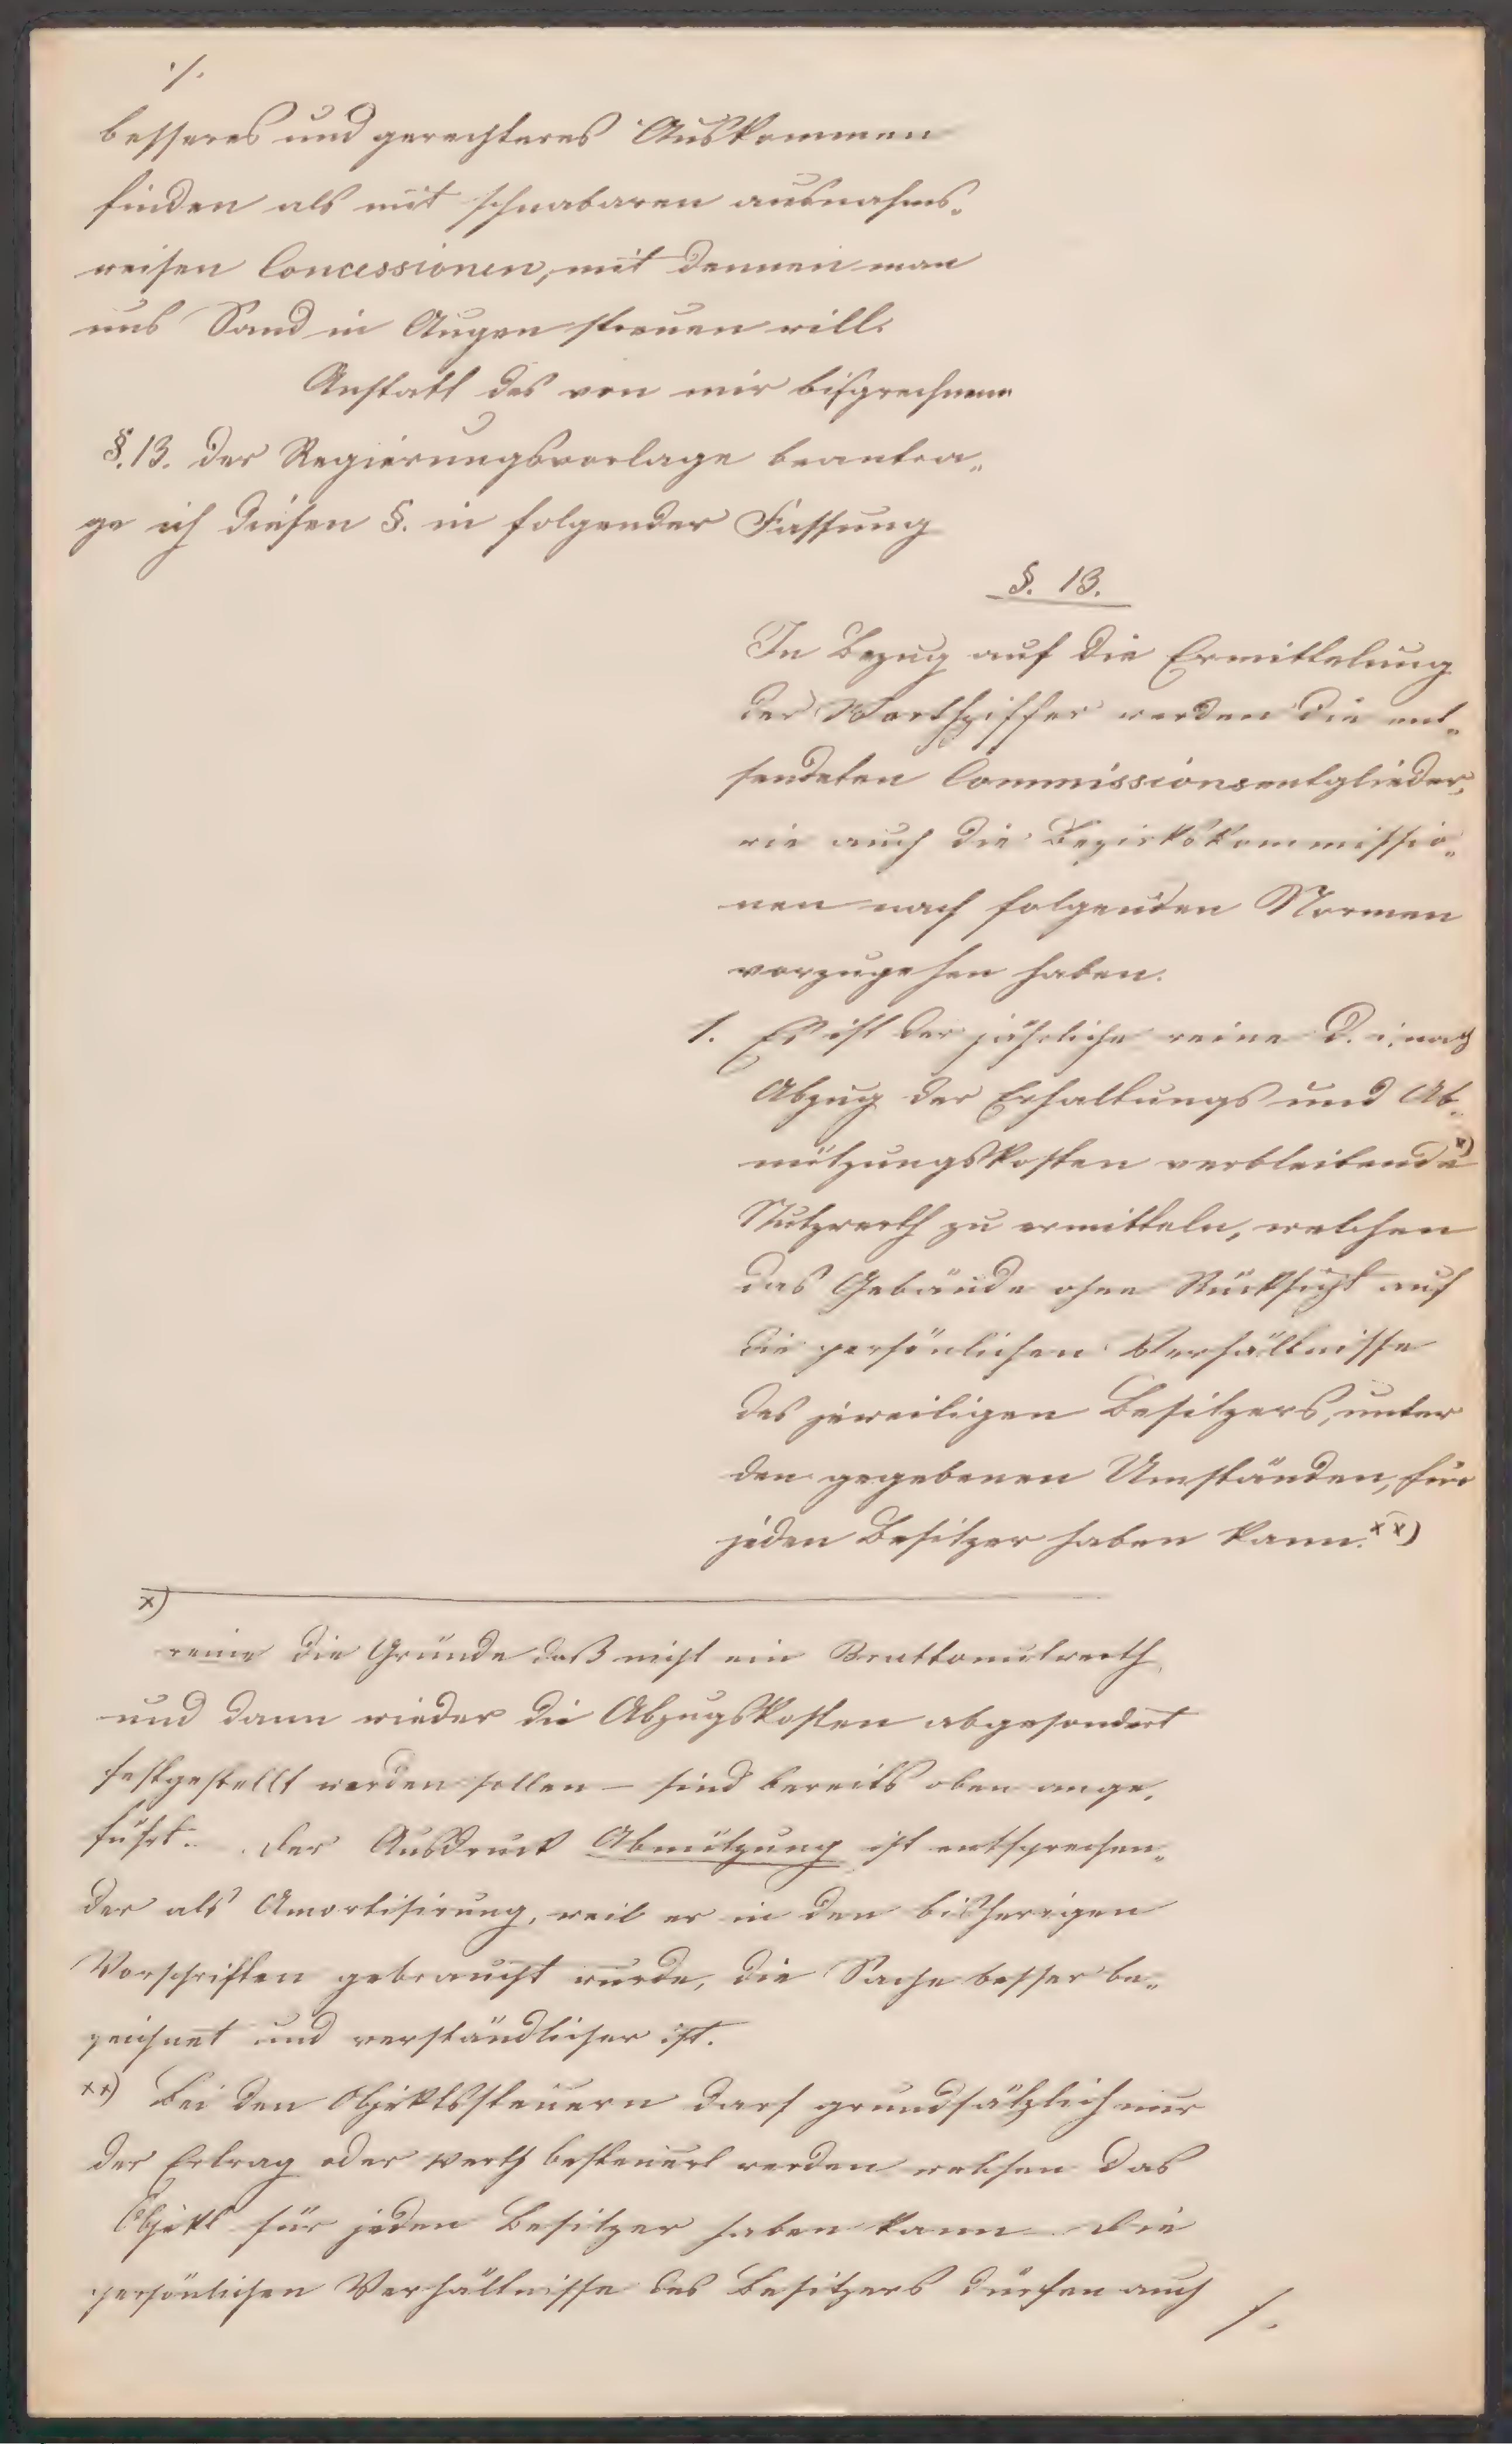 ./.
besseres und gerechteres Auskommen
finden als mit schnabaren ausnahms„
weisen Concessionen, mit dennen man
uns Sand in Augen streuen will.
Anstatt des von mir bisgrechnenen
§. 13. der Regierungsvorlage beantra„
ge ich diesen §. in folgender Fassung
§. 13.
In Bezug auf die Ermittelung
der Werthziffer werden die ent„
sendeten Commissionsmitglieder,
wie auch die Bezirkskommissio„
nen nach folgenden Normen
vorzugehen haben.
1. Es ist der jährliche reine d. i. nach
Abzug der Erhaltungs und Ab„
nützungskosten verbleibende x)
Nutzwerth zu ermitteln, welchen
das Gebäude ohne Rücksicht auf
die persönlichen Verhältnisse
des jeweiligen Besitzers, unter
den gegebenen Umständen, für
jeden Besitzer haben kann. xx)
x)
reine die Gründe daß nicht ein Bruttonutzwerth
und dann wieder die Abzugskosten abgesondert
festgestellt werden sollen – sind bereits oben ange„
führt. der Ausdruck Abnützung ist entsprechen„
der als Amortisirung, weil er in den bisherigen
Vorschriften gebraucht wurde, die Sache besser be„
zeichnet und verständlicher ist.
xx) Bei den Objektssteuern darf grundsätzlich nur
der Ertrag oder Werth besteuert werden welchen das
Objekt für jeden Besitzer haben kann die
persönlichen Verhältnisse des Besitzers dürfen auch
/.